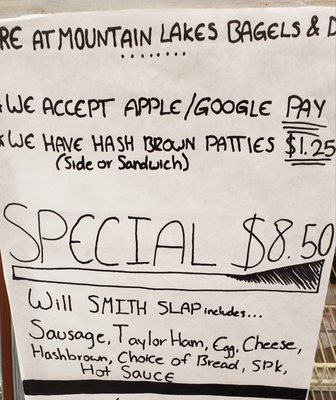 RE AT MOUNTAIN LAKES BAGELS & D
WE ACCEPT APPLE/GOOGLE PAY
*WE HAVE HASH BROWN PATTIES $1.25
(Side or Sandwich)
SPECIAL $8.50
Will SMITH SLAP includes...
Sausage, Taylor Ham, Egg, Cheese,
Hashbrown, Choice of Bread, SPK,
Hot Sauce